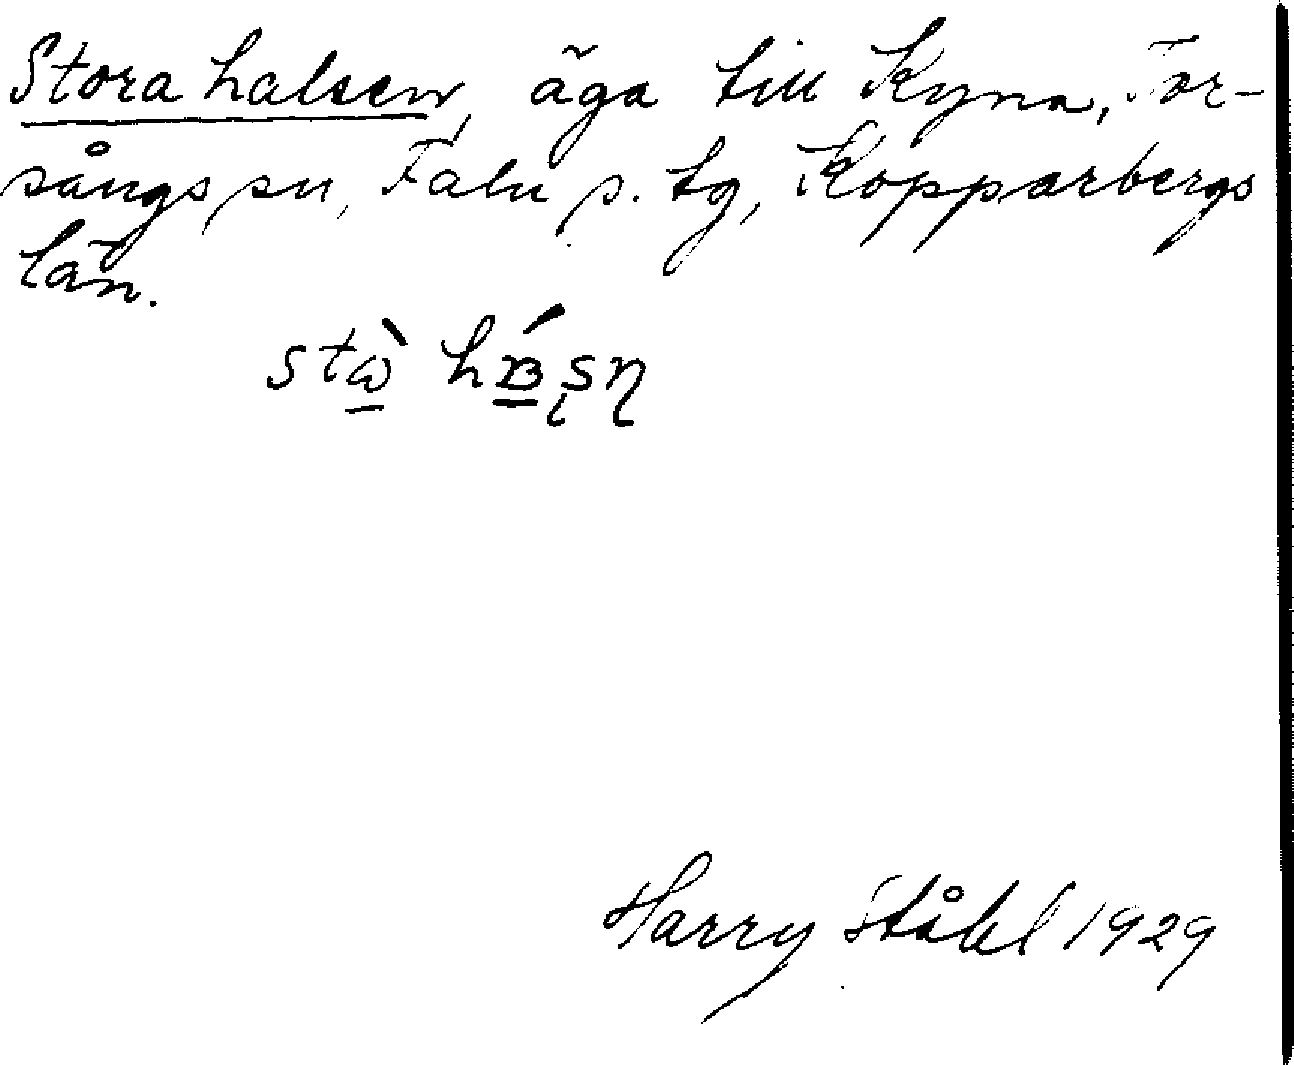 Stora halsen, äga till Kyna, Tor-
sångs sn, Falu s. tg, Kopparbergs
län.
Harry Ståhl 1929